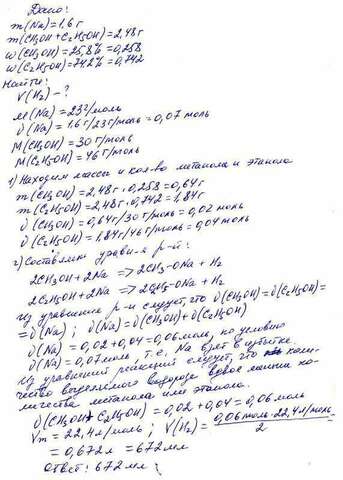 Дано:
m(Na)=1,6г
m(CH3OH+C2H5OH)=2,48г
w(CH3OH)=25,8%=0,258
w(C2H5OH)=74,2%=0,742
Найти:
V(H2)-?
M(Na)=23г/моль
ν(Na)=1,6г/23г/моль=0,07моль
M(CH3OH)=30г/моль
M(C2H5OH)=46г/моль
1) Находим массы и кол-во метанола и этанола
m(CH3OH)=2,48г·0,258=0,64г
m(C2H5OH)=2,48г·0,742=1,84г
ν(CH3OH)=0,64г/30г/моль=0,02моль
ν(C2H5OH)=1,84г/46г/моль=0,04моль
2) Составляем уравн-я р-й:
2CH3OH+2Na=>2CH3-ONa+H2
2C2H5OH+2Na=>2C2H5ONa+H2
Из уравнение р-и следует, что ν(CH3OH)=ν(C2H5OH)=
=ν(Na); ν(Na)=ν(CH3OH)+ν(C2H5OH)
ν(Na)=0,02+0,04=0,06моль, по условию
ν(Na)=0,07моль, т.е. Na взят в избытке.
Из уравнений реакций следует, что коли-
чество выделяемого водорода вдвое меньше ко-
личества метанола или этанола.
ν(CH3OH+C2H5OH)=0,02+0,04=0,06моль
Vm=22,4л/моль; V(H2)=0,06моль·22,4л/моль/2
=0,672л=672мл
Ответ: 672мл